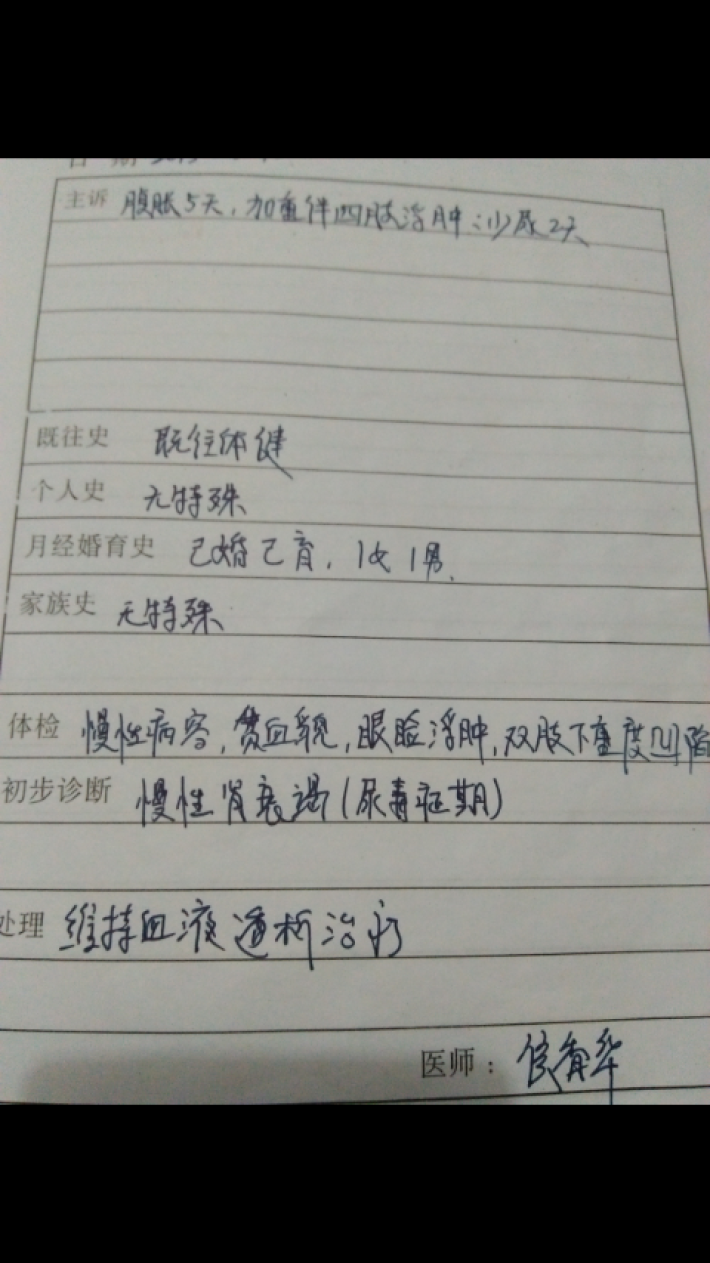 主诉 腹胀5天，加重伴四肢浮肿、少尿2天
既往史 既往体健
个人史 无特殊
月经婚育史 已婚已育，1女1男．
家族史 无特殊
体检 慢性病容，贫血貌，眼睑浮肿，双肢下重度凹陷
初步诊断 慢性肾衰竭（尿毒症期）
处理 维持血液透析治疗
医师：